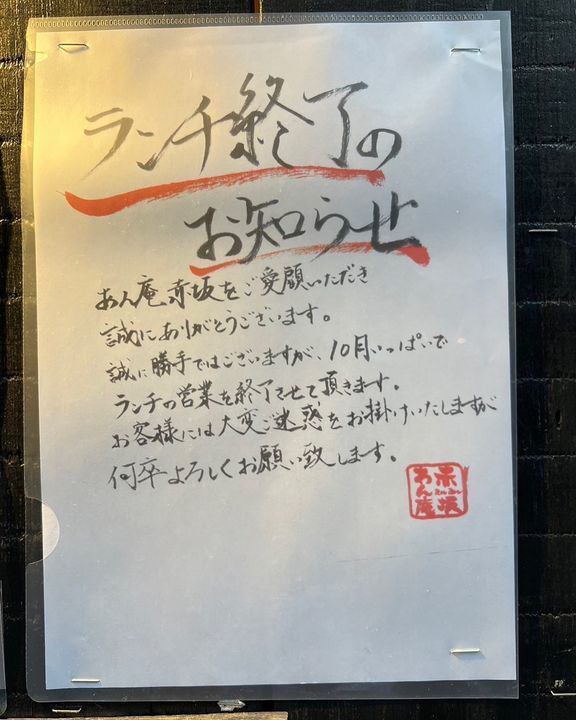 ランチ終了の
お知らせ
あん庵 赤坂をご愛顧いただき
誠にありがとうございます。
誠に勝手ではございますが、10月いっぱいで
ランチの営業を終了させて頂きます。
お客様には大変ご迷惑をお掛けいたしますが
何卒よろしくお願い致します。
赤坂
あん庵